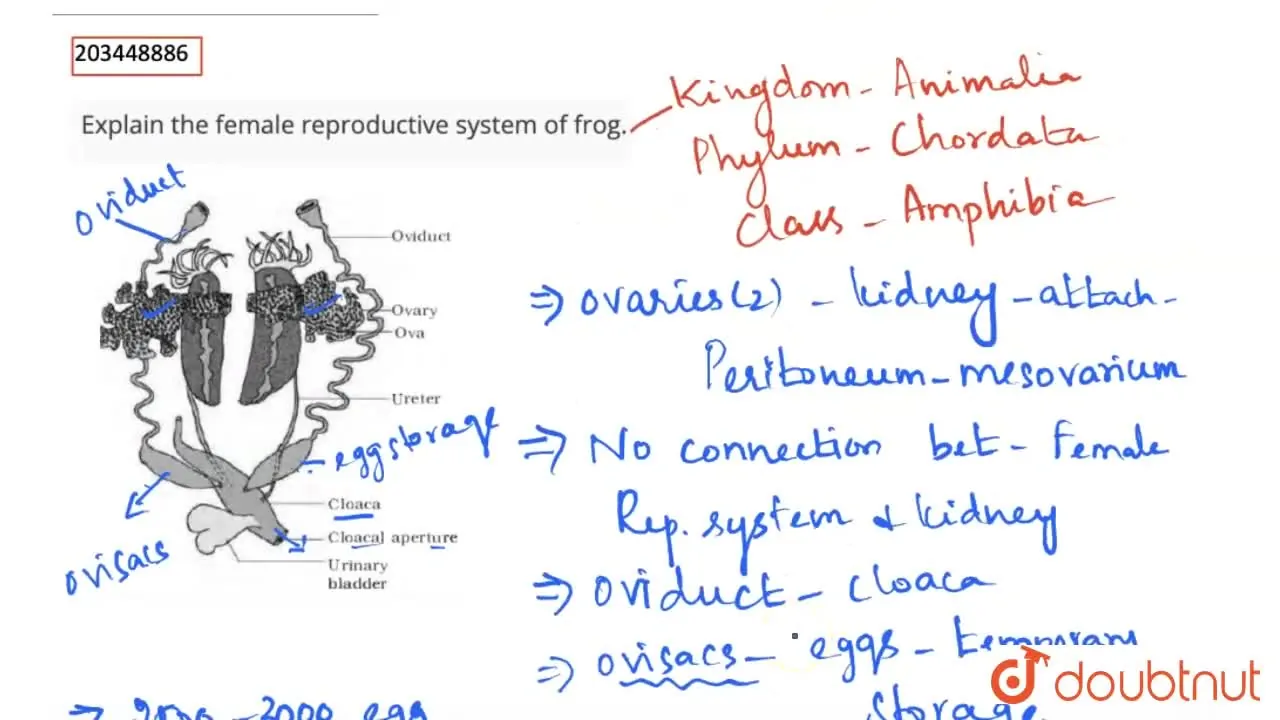 203448886
Explain the female reproductive system of frog.
Kingdom - Animalia
Phylum - Chordata
Class - Amphibia
Oviduct
Oviduct
Ovary
Ova
Ureter
egg storage
Cloaca
Cloacal aperture
Urinary
bladder
ovisacs
⇒ ovaries (2) - kidney - attach -
Peritoneum - mesovarium
⇒ No connection bet - Female
Rep. system & kidney
⇒ oviduct - cloaca
⇒ ovisacs - eggs - temporary
storage
⇒ 2500 - 3000 egg
doubtnut